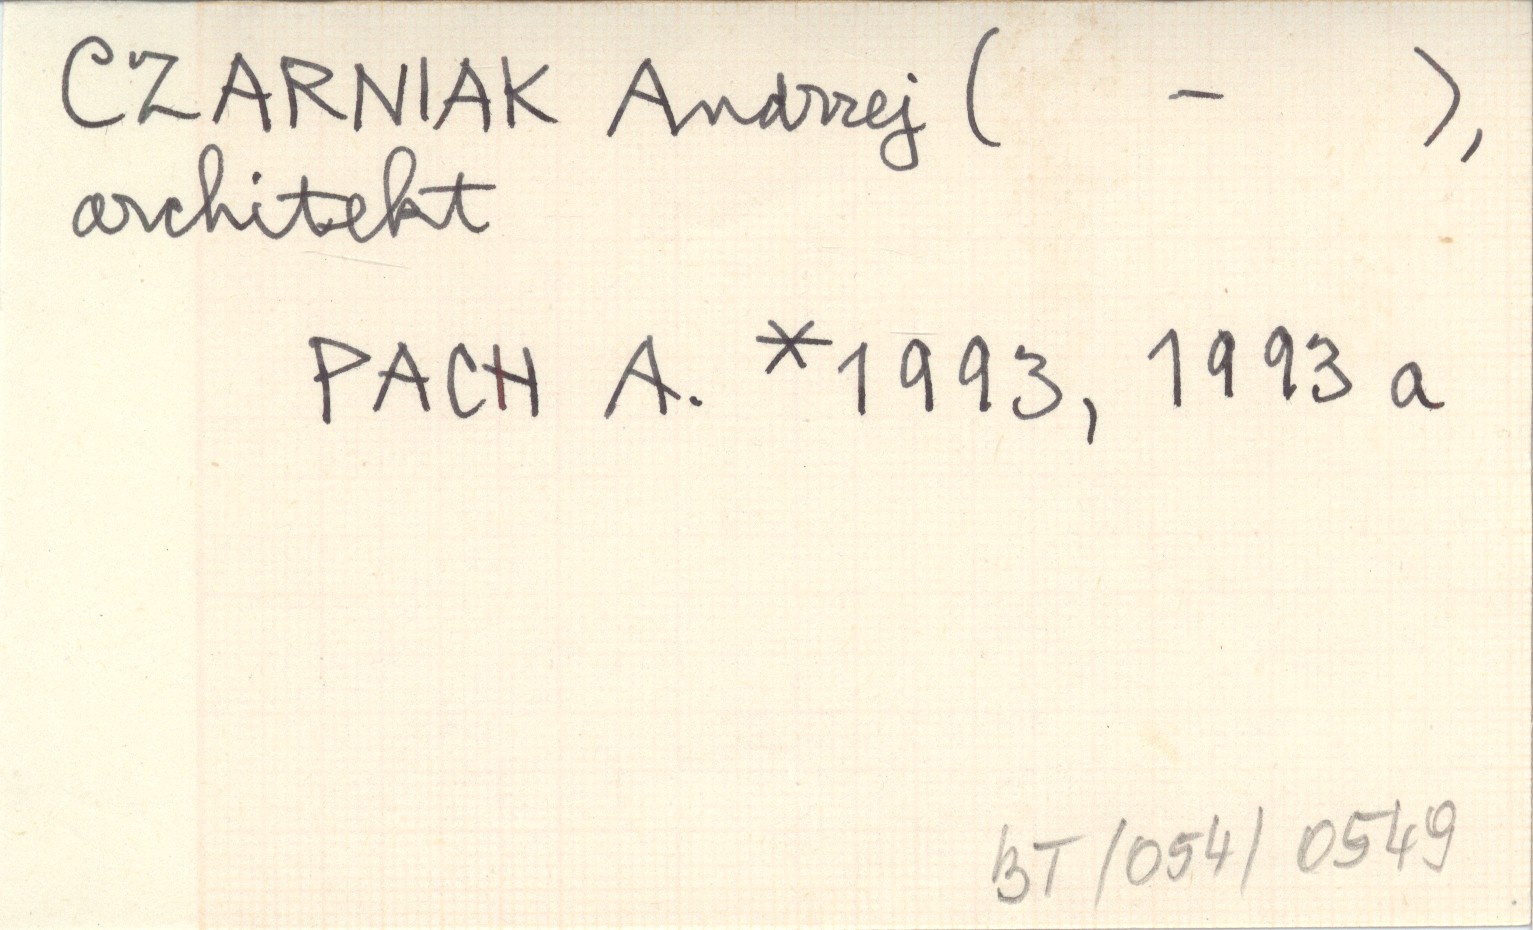 CZARNIAK Andrzej ( - ),
architekt
PACH A. *1993, 1993 a
BT/054/0549